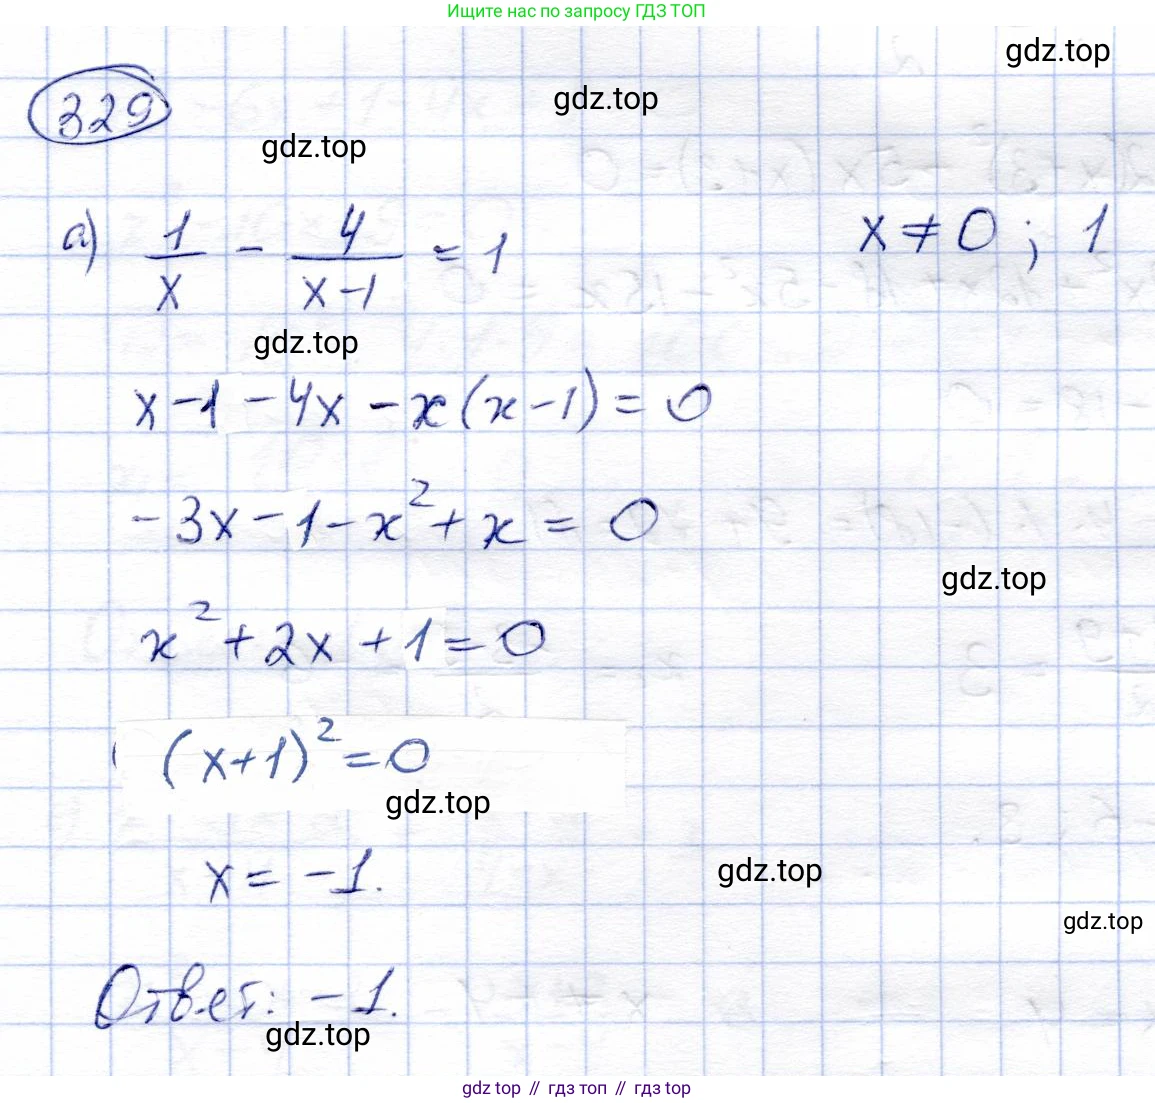 Ищите нас по запросу ГДЗ ТОП
gdz.top
gdz.top
329
gdz.top
а) 1/x - 4/(x-1) = 1     x ≠ 0; 1
gdz.top
x-1-4x-x(x-1)=0
-3x-1-x²+x=0
gdz.top
x²+2x+1=0
(x+1)²=0
gdz.top
x=-1.
gdz.top
gdz.top
Ответ: -1.
gdz.top
gdz top // гдз топ // гдз top